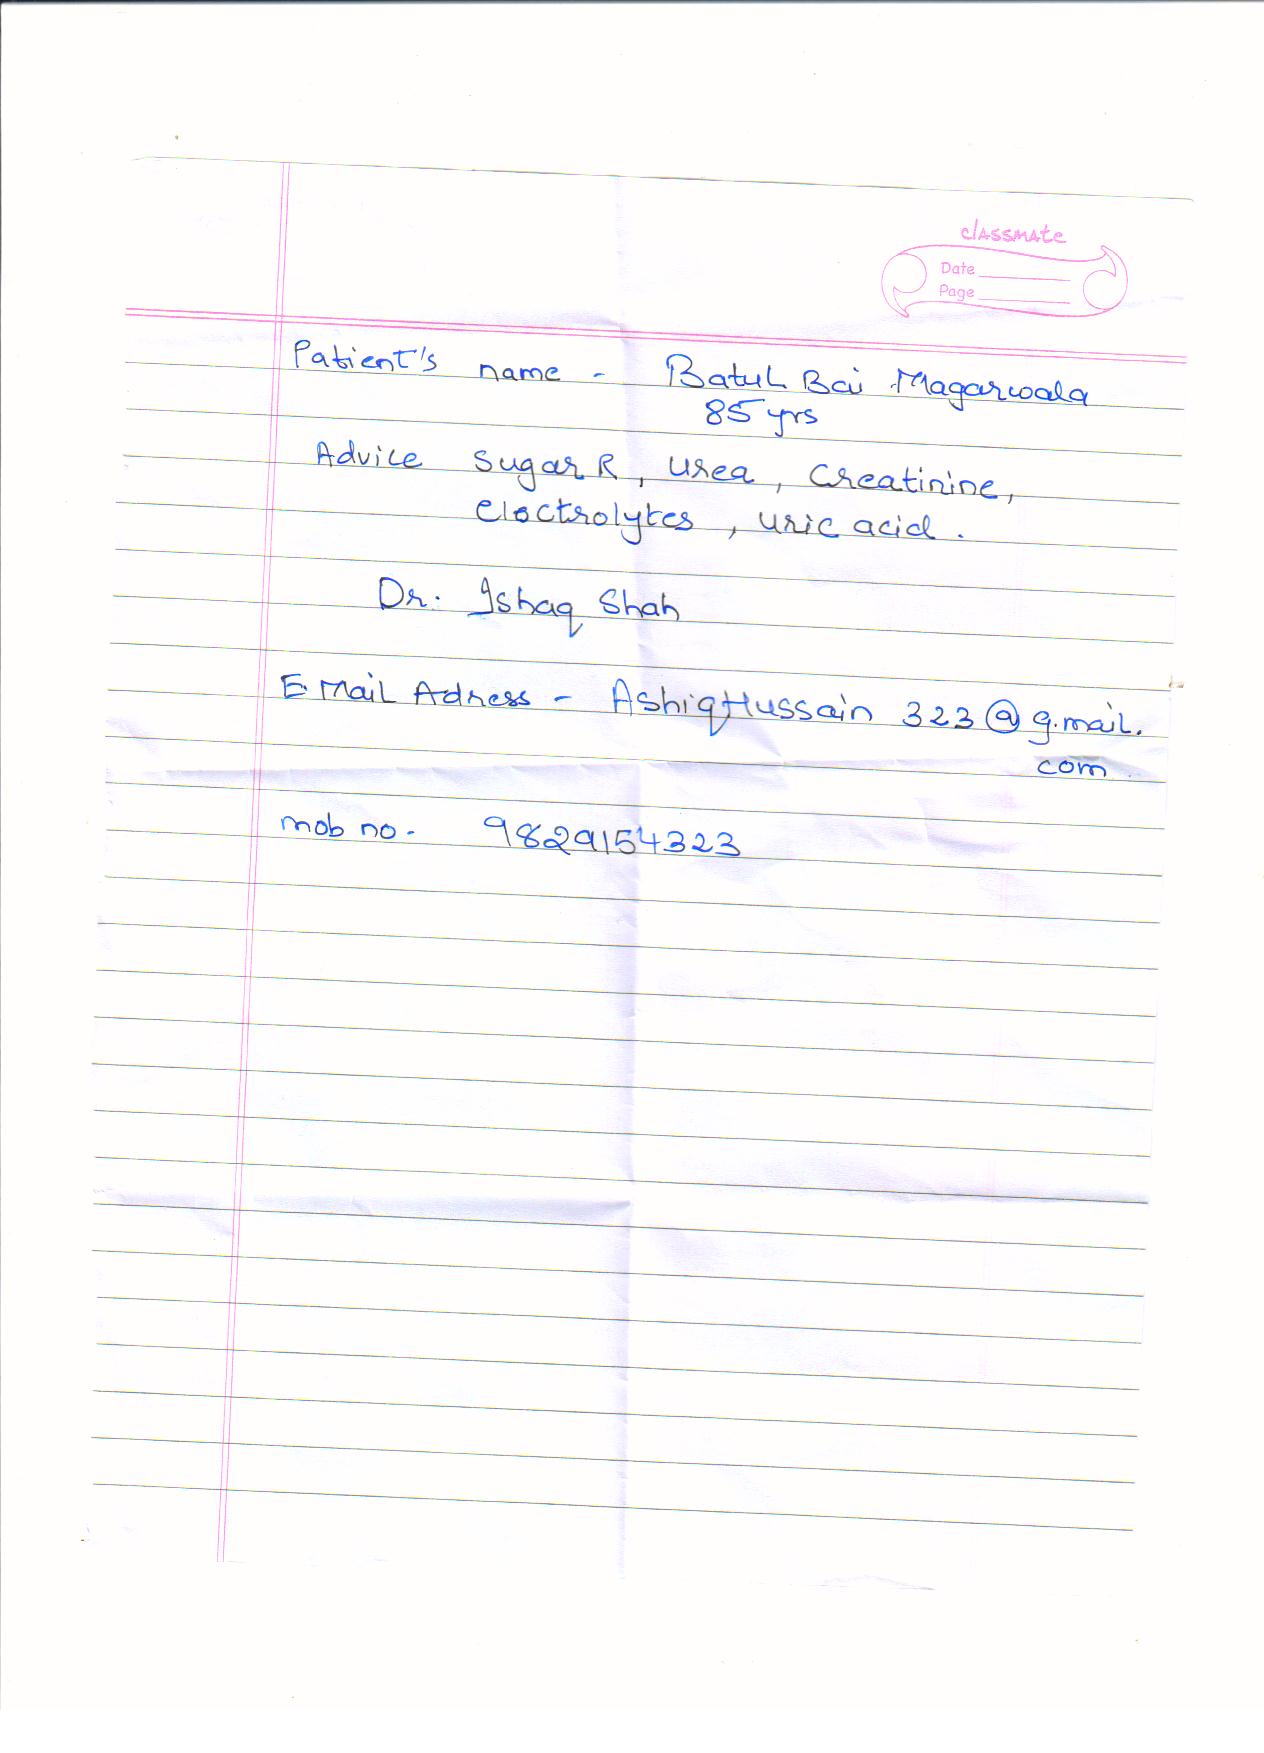 classmate
Date
Page
Patient's name - Batul Bai Magarwala
85 yrs
Advice Sugar R, Urea, Creatinine,
electrolytes, uric acid.
Dr. Ishaq Shah
E.Mail Adress - AshiqHussain 323@g.mail.
com
mob no. 9829154323